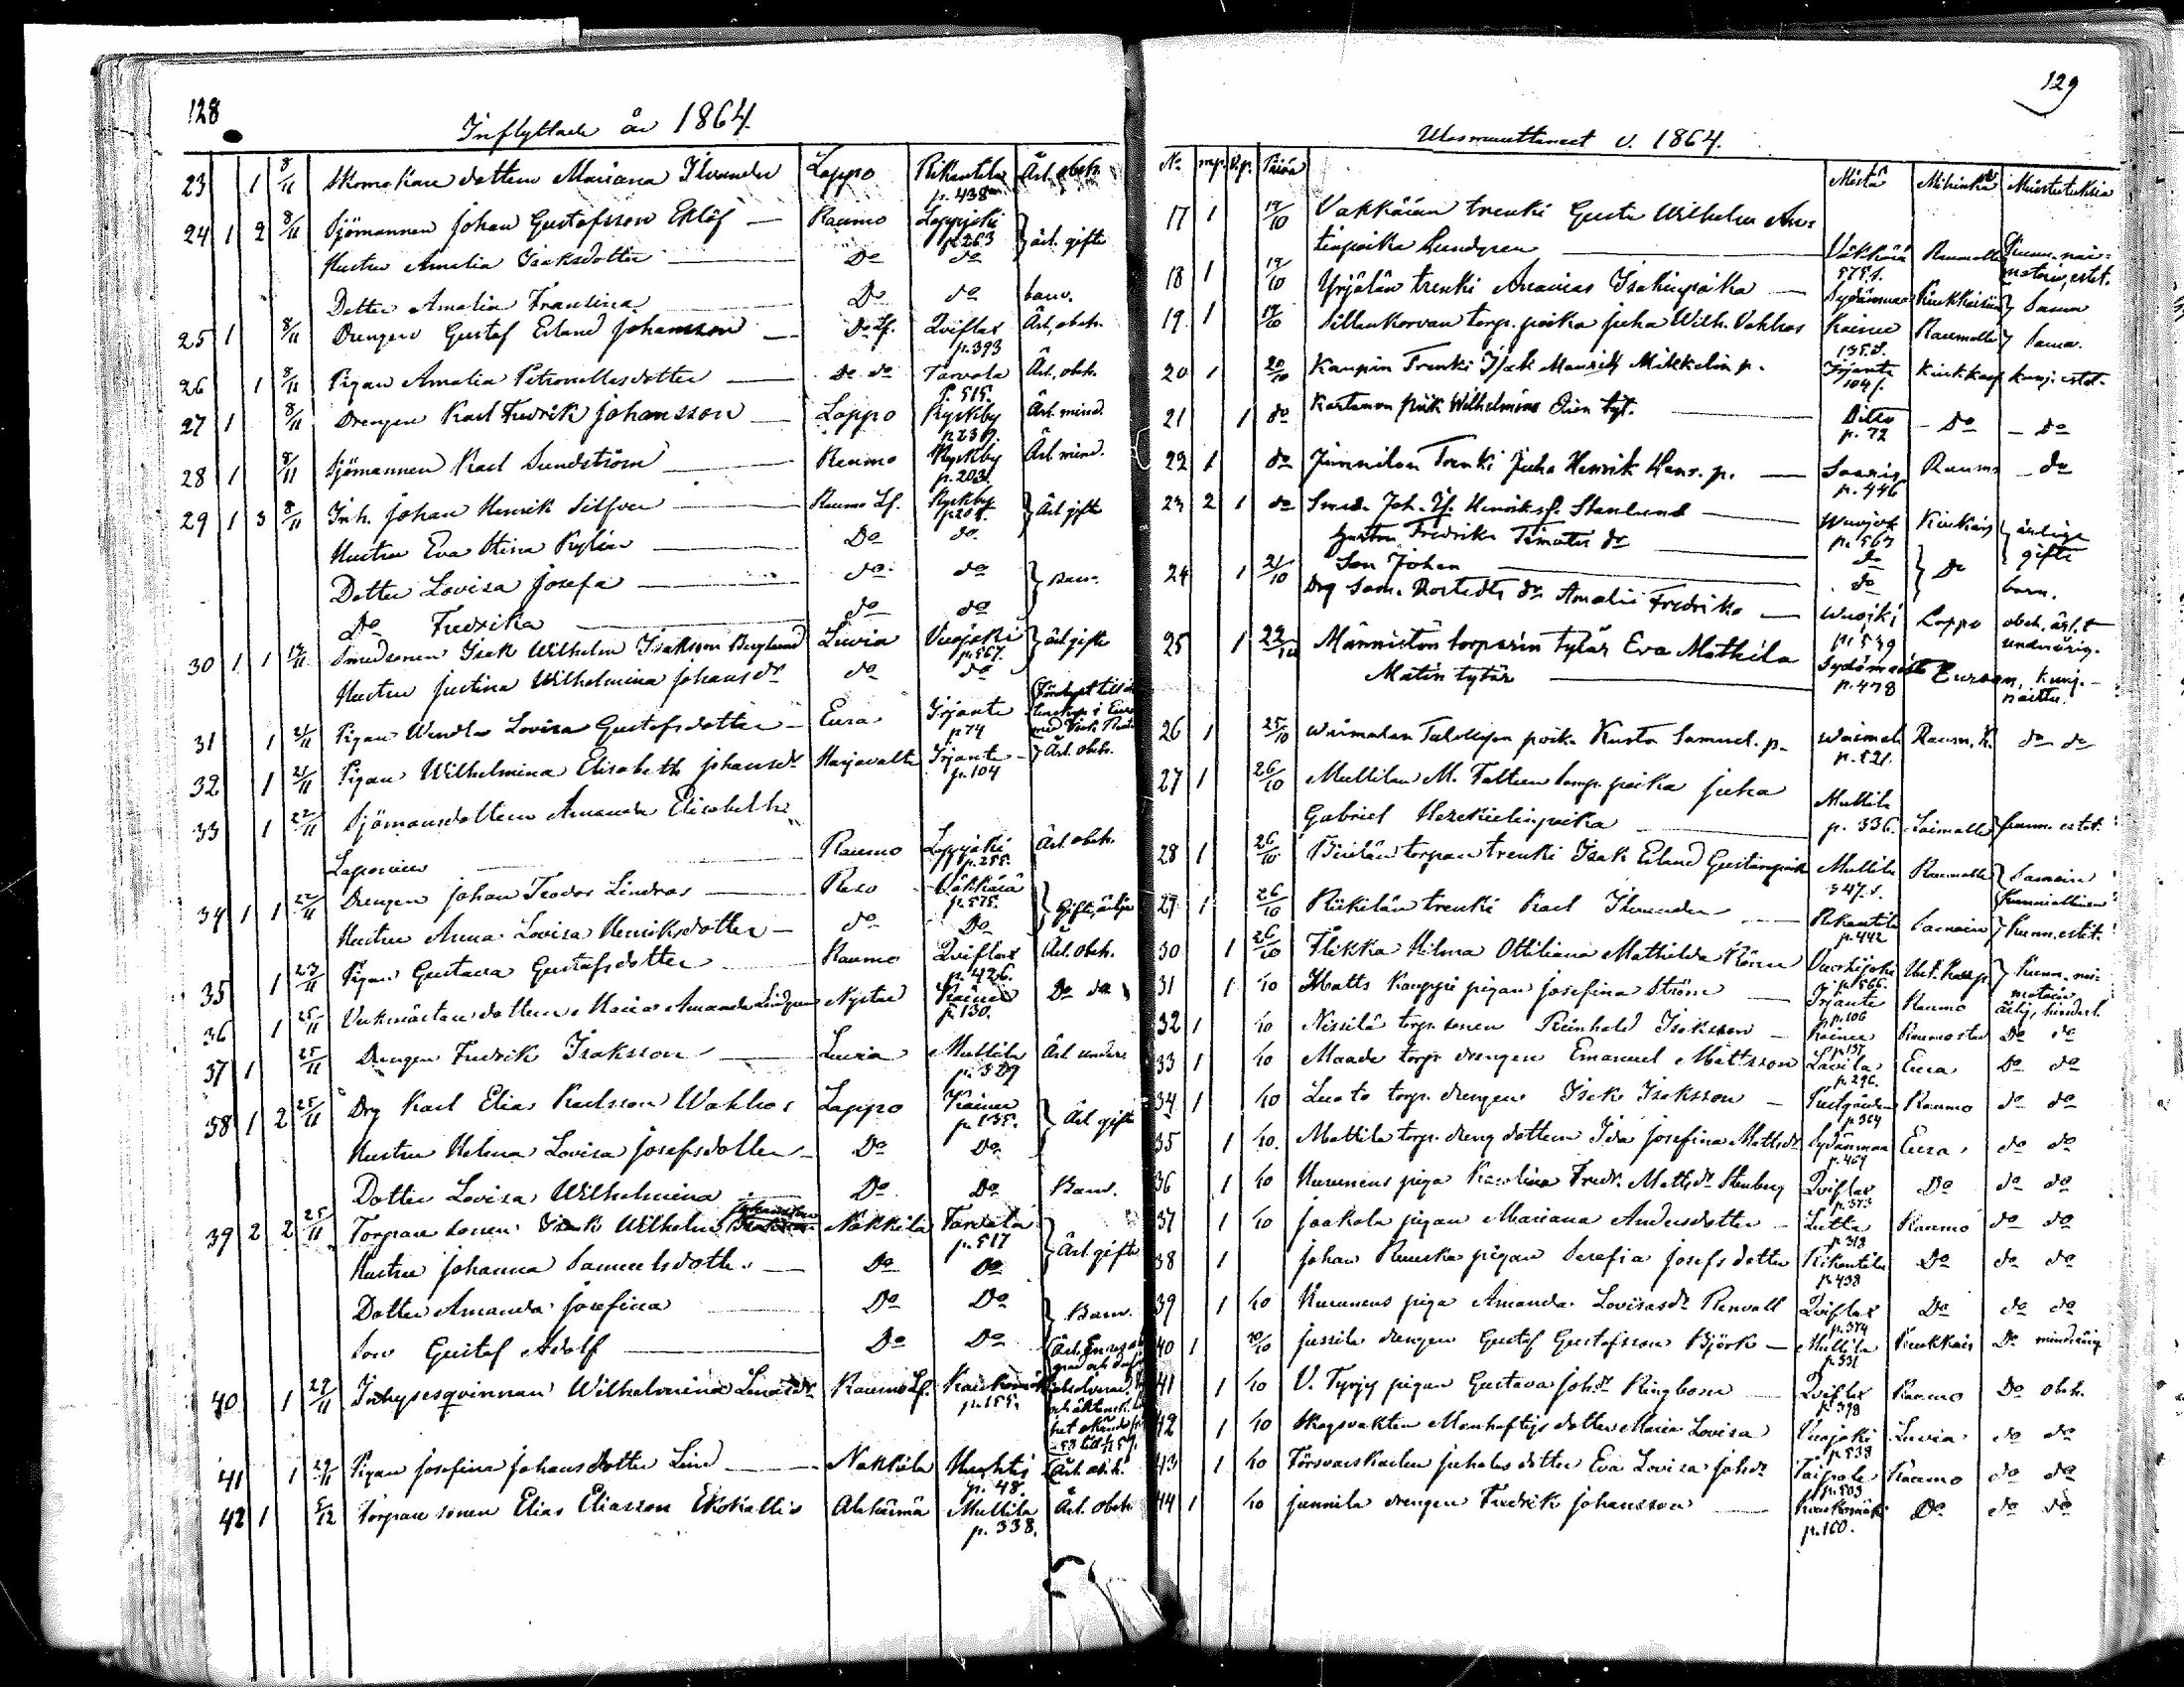 128
Inflyttade år 1864.
23 1 8/11 Skomakare dottern Mariana Ilvander — Lappo Rikantila p. 438 Ärl. obeh.
24 1 2 8/11 Sjömannen Johan Gustafsson Eklöf — Raumo Lappijoki p. 263 } ärl. gifte
Hustru Amalia Isaksdotter — Do do
Dotter Amalia Frantina — Do do barn.
25 1 8/11 Drengen Gustaf Erland Johansson — Do Lf. Qviflax p. 393 Ärl. obeh.
26 1 8/11 Pigan Amalia Petronellasdotter — Do do Tarvola p. 515. Ärl. obeh.
27 1 8/11 Drengen Karl Fredrik Johansson — Lappo Kyrkby p. 239. Ärl. mind.
28 1 8/11 Sjömannen Karl Sundström — Raumo Kyrkby p. 203. Ärl. mind.
29 1 3 8/11 Inh. Johan Henrik Silfver — Raumo Lf. Kyrkby } Ärl. gifte
Hustru Eva Stina — Do do
Dotter Lovisa Josefa — do do } Barn
Do Fredrika — do do
30 1 1 Smedsonen Isak Wilhelm Isaksson Berglund Luvia Vuojoki p. 567. } ärl. gifte
Hustru Justina Wilhelmina Johansdr do do
31 1 21/11 Pigan Wendla Lovisa Gustafsdotter — Eura Irjante p. 74
32 1 21/11 Pigan Wilhelmina Elisabeth Johansdr Harjavalta Irjante p. 104 } Ärl. obeh.
33 1 22/11 Sjömansdottern Amanda Elisabeth
— Raumo Lappijoki p. 255. Ärl. obeh.
34 1 1 22/11 Drengen Johan Teodor Lindros — Reso Väkkärä p. 575. } Gifte, ärlige
Hustru Anna Lovisa Henriksdotter — do Do
35 1 23/11 Pigan Gustava Gustafsdotter — Raumo Qviflax p. 426. Ärl. obeh.
36 1 25/11 Verkmästare dottern Maria Amanda Lindgren Nystad Kainu p. 130. Do do
37 1 25/11 Drengen Fredrik Isaksson — Luvia Mullila p. 329 Ärl. under.
38 1 2 25/11 Drg Karl Elias Karlsson Wahlros Lappo Kainu p. 135. } Ärl. gifte
Hustru Helena Lovisa Josefsdotter — Do Do
Dotter Lovisa Wilhelmina — Do Do Barn.
39 2 2 25/11 Torpare sonen Isak Wilhelm Johansson Nakkila Tarvola p. 517 } Ärl. gifte
Hustru Johanna Samuelsdotter — Do Do
Dotter Amanda Josefina — Do Do } Barn.
Son Gustaf Adolf — Do Do
40 1 29/11 Inhysesqvinnan Wilhelmina — Raumo Lf.
41 1 29/11 Pigan Josefina Johansdotter Lind — Nakkila p. 48. Ärl. obeh.
42 1 5/12 Torpare sonen Elias Eliasson Alahärmä Mullila p. 338. Ärl. obeh.
129
Ulosmuuttaneet v. 1864.
No mp. V.p. Päivä Mistä Mihinkä Muistutuksia
17 1 19/10 Vakkärän trenki Gusta Wilhelm An-
tinpoika Lundgren — Väkkärä 575 s. Raumalle
18 1 19/10 Yrjälän trenki Ananias Isakinpoika — Sydänmaa } Sama
19 1 19/10 Sillankorvan torp. poika Juha Wilh. Vahlros Kainu 135 s. Raumalle } Sama.
20 1 20/10 Kaupin Trenki Isak Mauritz Mikkelin p. Irjante 104 s. kunj. estet.
21 1 do piik Wilhelmina tyt. — Ditto p. 72 — Do — Do
22 1 do Junnilan Trenki Juha Henrik Hans. p. — p. 446 Raumo — do
23 2 1 do Smed. Joh. Henrikss. Stenlund — Wuojok p. 567 } ärlige gifte
Hustru Fredrika do — do } Do
Son Johan — do barn.
24 1 21/10 Drg Sam. dr Amalia Fredrika — Wuojoki p. 539 Lappo obeh. ärl.
25 1 22/10 Männistön torparin tytär Eva Mathila Sydänmaa p. 478 Euraan, kunj.
Matin tytär —
26 1 25/10 Waimalan poik. Kusta Samuel. p. Waimal p. 521. Raum. K. do do
27 1 26/10 Mullilan M. poika Juha
Gabriel Hezekielinpoika — Mullila p. 336. kunn. estet.
28 1 26/10 torpan trenki Isak Erland Gustavinpoika Mullila 347 s. Raumalle } Samoin
29 1 26/10 Riikilän trenki Karl Ilvander — Rikantila p. 442 Samoin } kunn. estet.
30 1 26/10 Flikka Hilma Ottiliana Mathilda p. 566.
31 1 /10 Matts Kauppi pigan Josefina Ström — Irjante p. 106 Raumo
32 1 /10 Nissilä torp. sonen Reinhold Isaksson — Kainu p. 137 Raumo stad Do do
33 1 /10 Maade torp. drengen Emanuel Mattsson Lavila p. 296. Eura Do do
34 1 /10 Luoto torp. drengen Isak Isaksson — Raumo do do
35 1 /10. Mattila torp. dreng dottern Ida Josefina Mattsdr Sydänmaa p. 469 Eura do do
36 1 /10 piga Karolina Fredr. Mattsdr Stenberg Qviflax p. 373 Do do do
37 1 /10 Jaakola pigan Mariana Andersdotter — Lutta p. 313 Raumo do do
38 1 Johan pigan Serafia Josefsdotter Rikantila p. 438 Do do do
39 1 /10 piga Amanda Lovisasdr Renvall Qviflax p. 374 Do do do
40 1 Jussila drengen Gustaf Gustafsson Björk — Mullila p. 331 Do minderårig
41 1 /10 V. Tyrjy pigan Gustava Johdr Ringbom — Qviflax p. 398 Raumo Do obeh.
42 1 /10 Skogsvakten dotter Maria Lovisa Vuojoki p. 538 Luvia do do
43 1 /10 Försvarskarlen dotter Eva Lovisa Johdr Taipale p. 503 Raumo do do
44 1 /10 Junnila drengen Fredrik Johansson — p. 160. Do do do